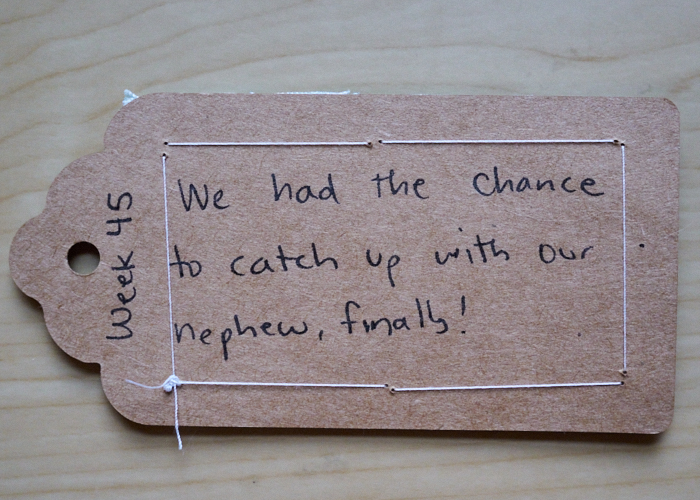 Week 45
We had the chance
to catch up with our
nephew, finally!